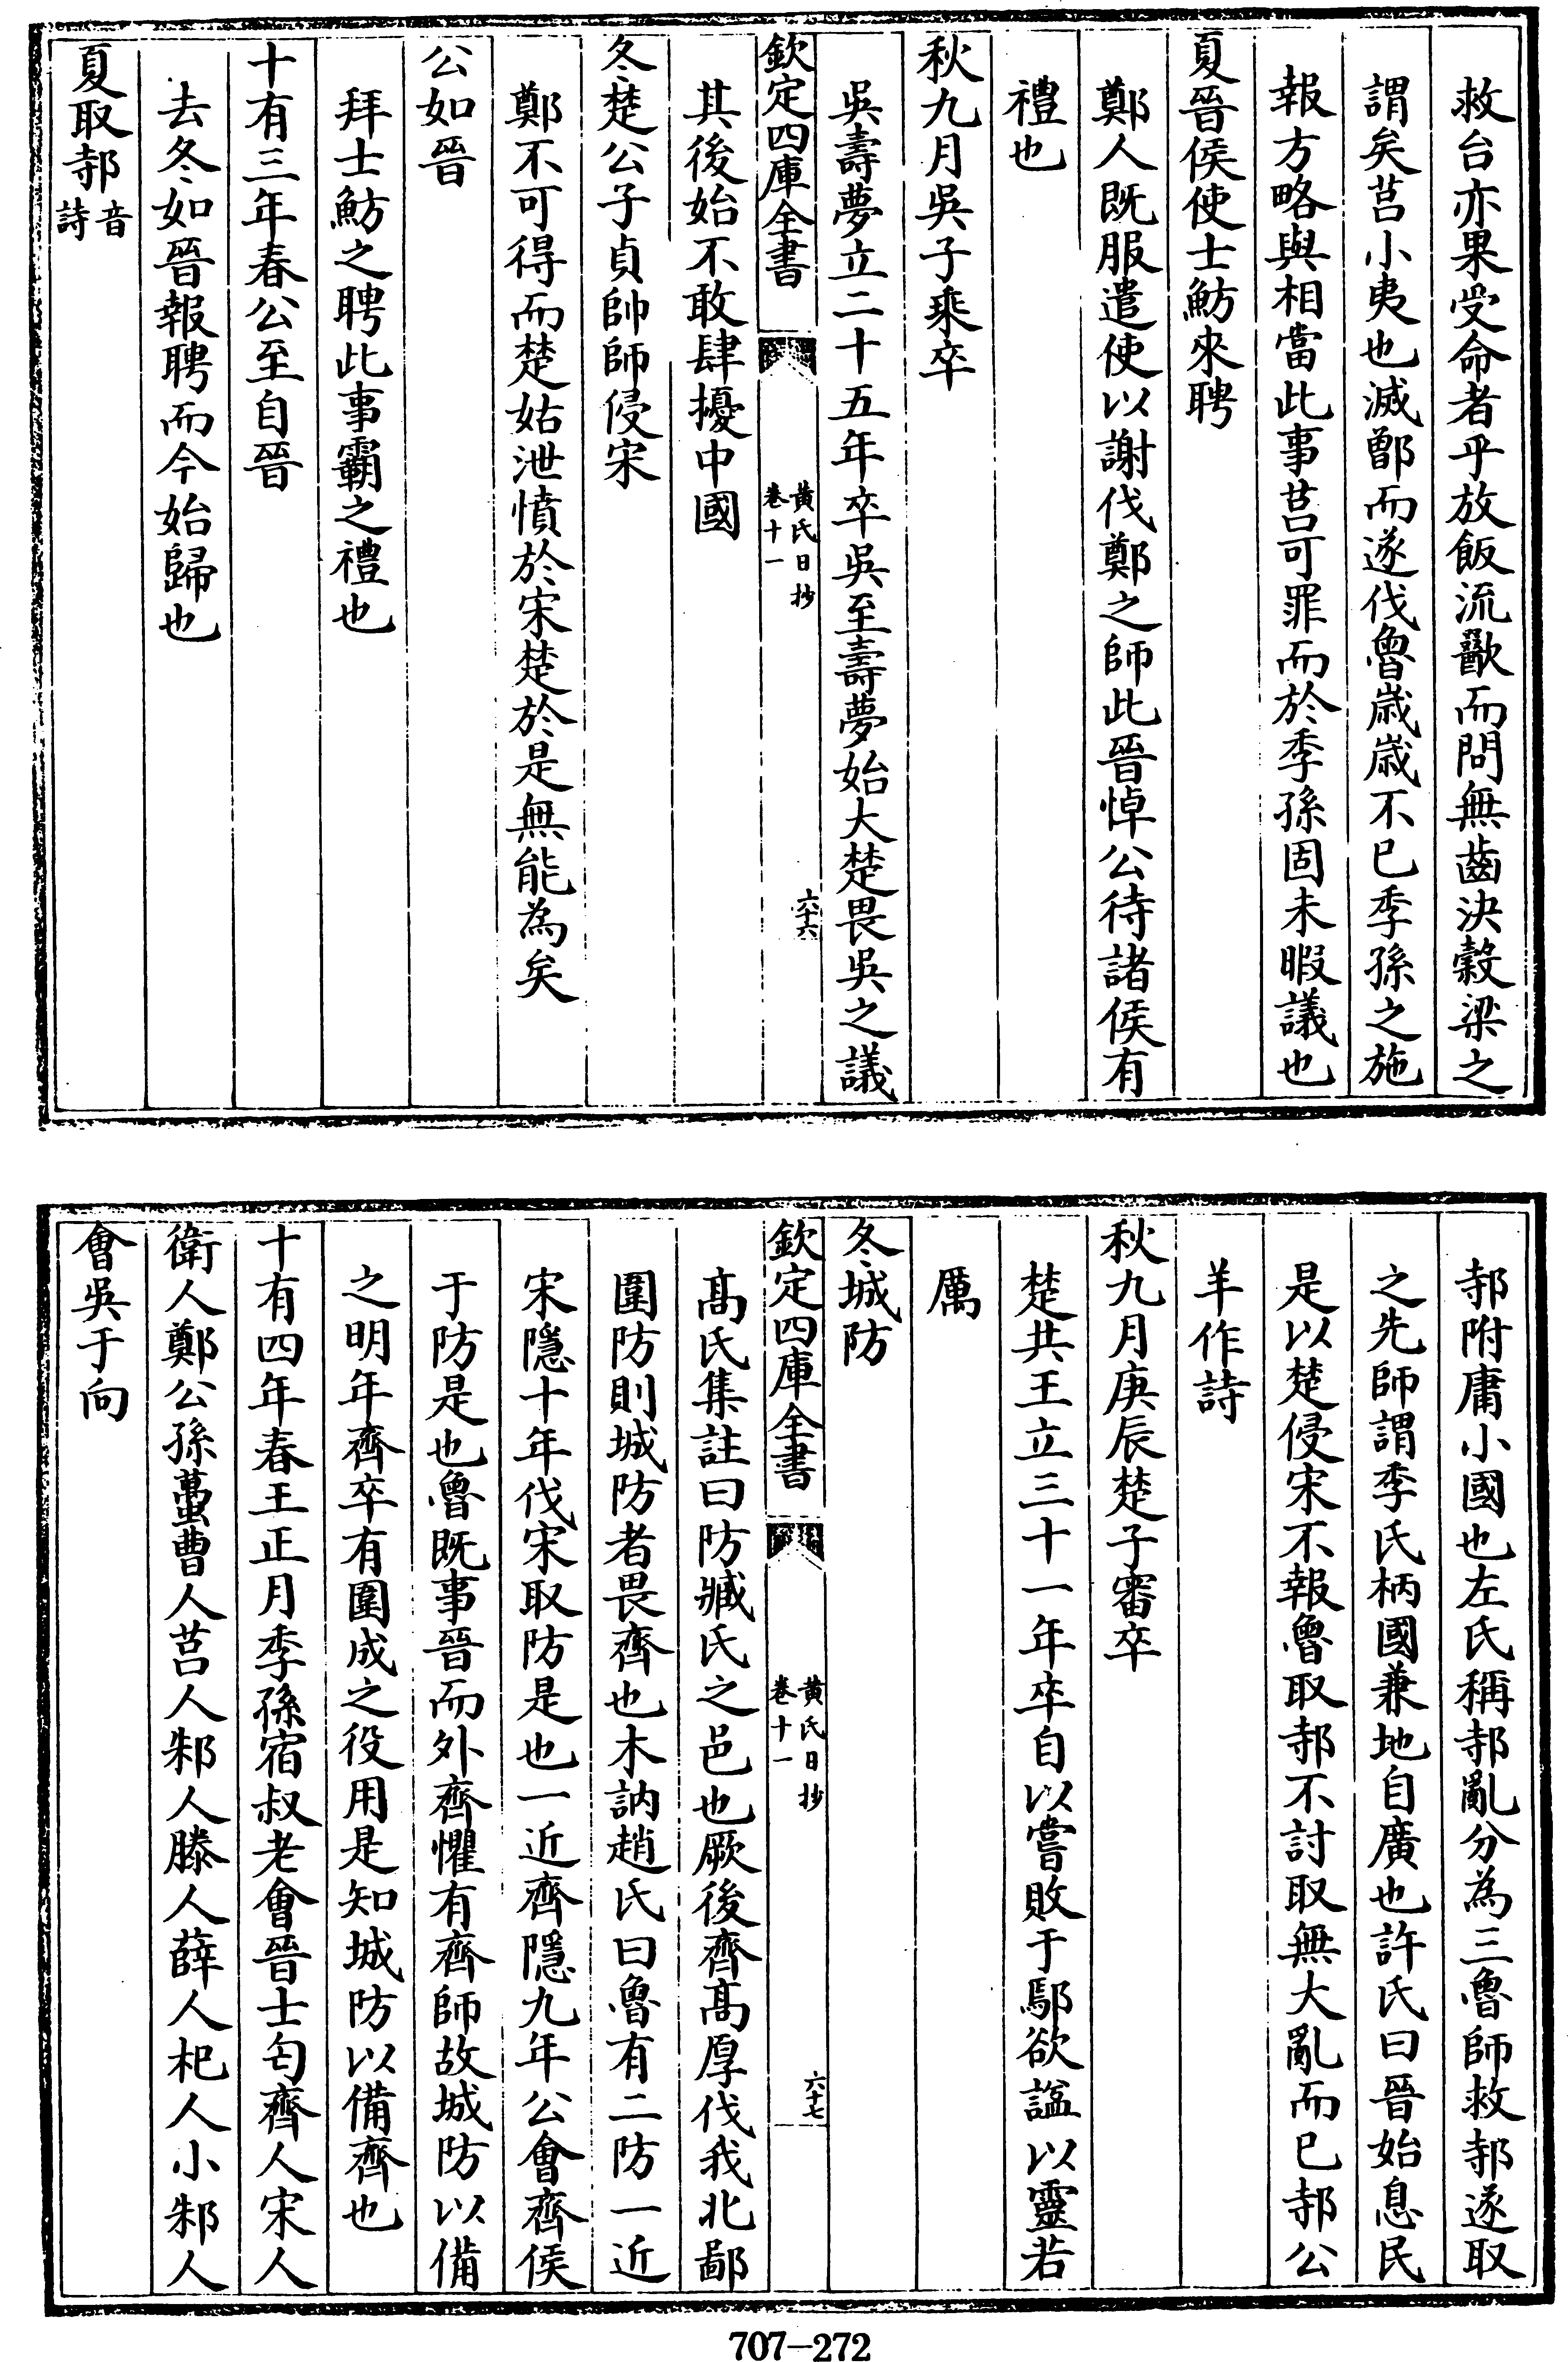 救台亦果受命者乎放飯流歠而問無齒決榖梁之
謂矣莒小夷也滅鄫而遂伐魯歳歳不已季孫之施
報方略與相當此事莒可罪而於季孫固未暇議也
夏晉侯使士魴來聘
鄭人既服遣使以謝伐鄭之師此晉悼公待諸侯有
禮也
秋九月吳子乘卒
吳壽夢立二十五年卒吳至壽夢始大楚畏吳之議
欽定四庫全書
黃氏日抄
卷十一
六十六
其後始不敢肆擾中國
冬楚公子貞帥師侵宋
鄭不可得而楚姑泄憤於宋楚於是無能為矣
公如晉
拜士魴之聘此事霸之禮也
十有三年春公至自晉
去冬如晉報聘而今始歸也
夏取邿音詩
邿附庸小國也左氏稱邿亂分為三魯師救邿遂取
之先師謂季氏柄國兼地自廣也許氏曰晉始息民
是以楚侵宋不報魯取邿不討取無大亂而已邿公
羊作詩
秋九月庚辰楚子審卒
楚共王立三十一年卒自以嘗敗于鄢欲諡以靈若
厲
冬城防
欽定四庫全書
黃氏日抄
卷十一
六十七
髙氏集註曰防臧氏之邑也厥後齊髙厚伐我北鄙
圍防則城防者畏齊也木訥趙氏曰魯有二防一近
宋隱十年伐宋取防是也一近齊隱九年公會齊侯
于防是也魯既事晉而外齊懼有齊師故城防以備
之明年齊卒有圍成之役用是知城防以備齊也
十有四年春王正月季孫宿叔老會晉士匄齊人宋人
衛人鄭公孫蠆曹人莒人邾人滕人薛人杞人小邾人
會吳于向
707—272